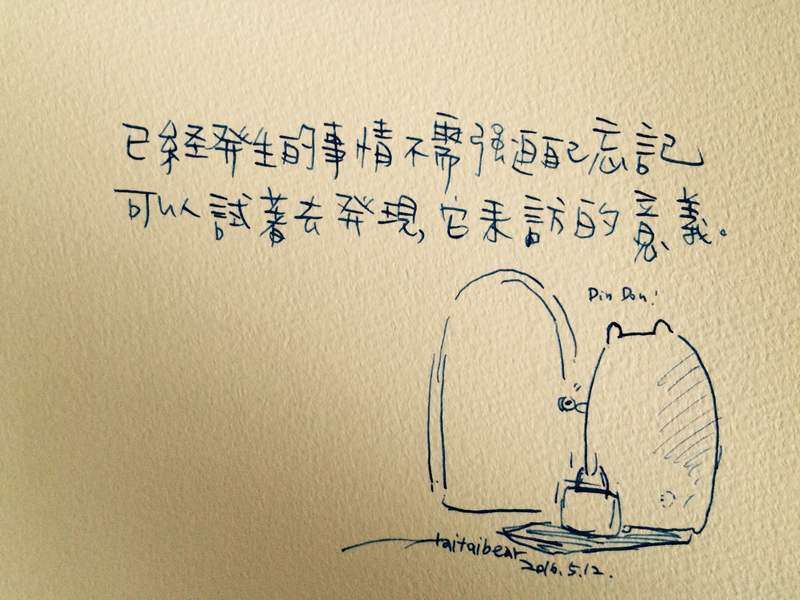 已経発生的事情不需強迫自己忘記
可以試著去発現,它来訪的意義。
Din Don!
taitaibear
2016.5.12.